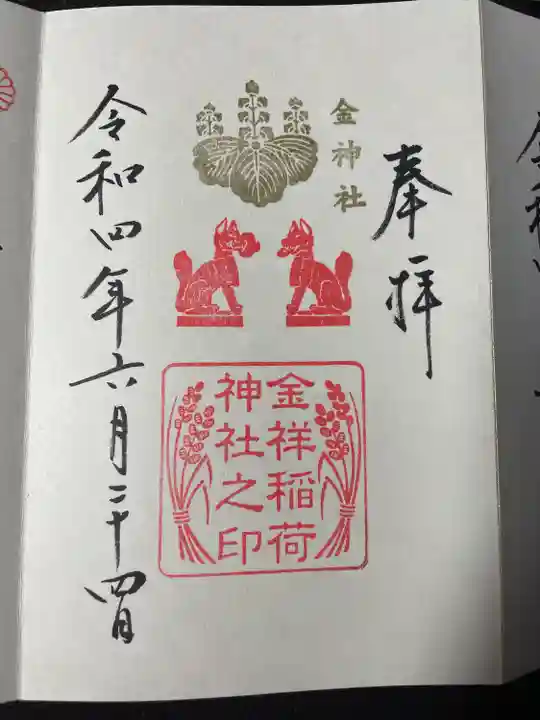 奉拝
金神社
金祥稲荷
神社之印
令和四年六月二十四日